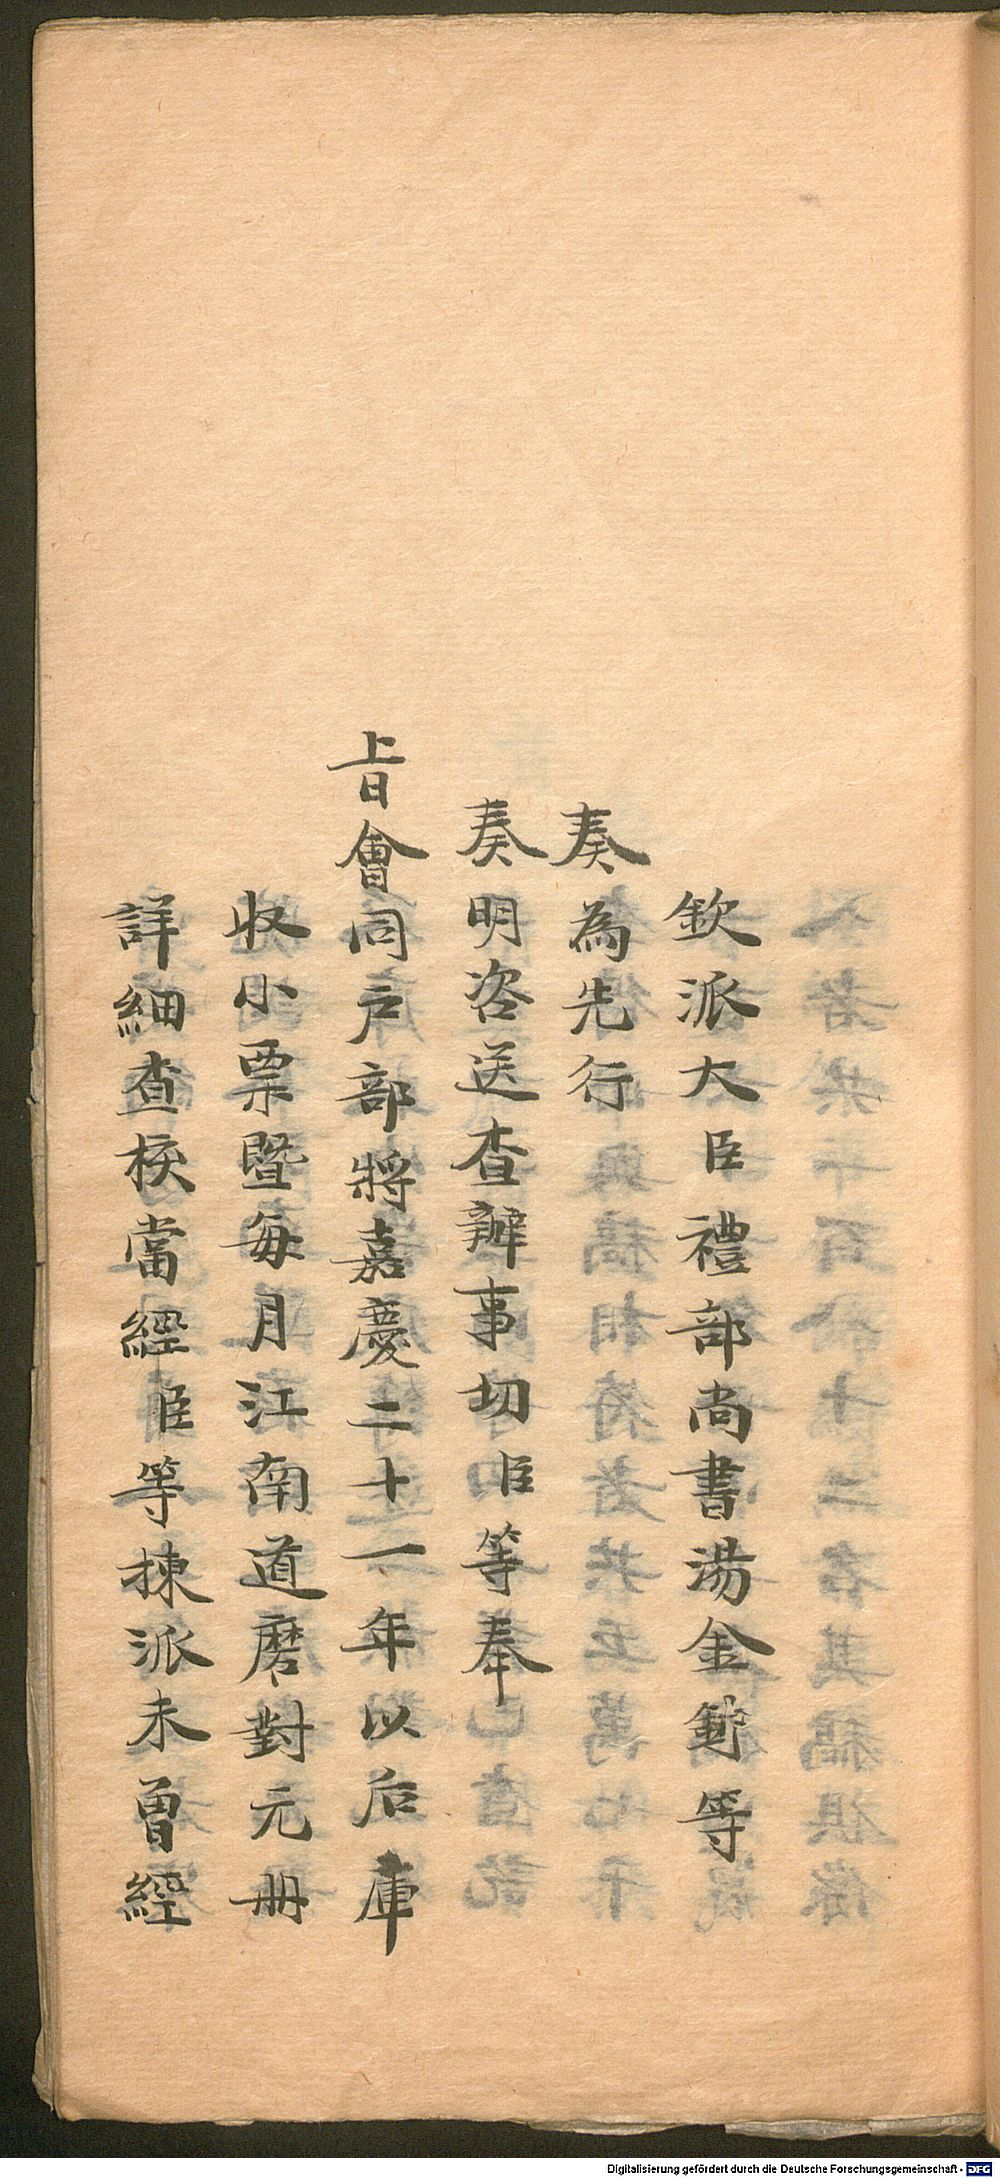 欽派大臣禮部尚書湯金釗等
奏為先行
奏明咨送查辦事切臣等奉
旨會同戶部將嘉慶二十一年以后庫
收小票暨每月江南道磨對元冊
詳細查核當經臣等揀派未曾經
Digitalisierung gefördert durch die Deutsche Forschungsgemeinschaft - DFG